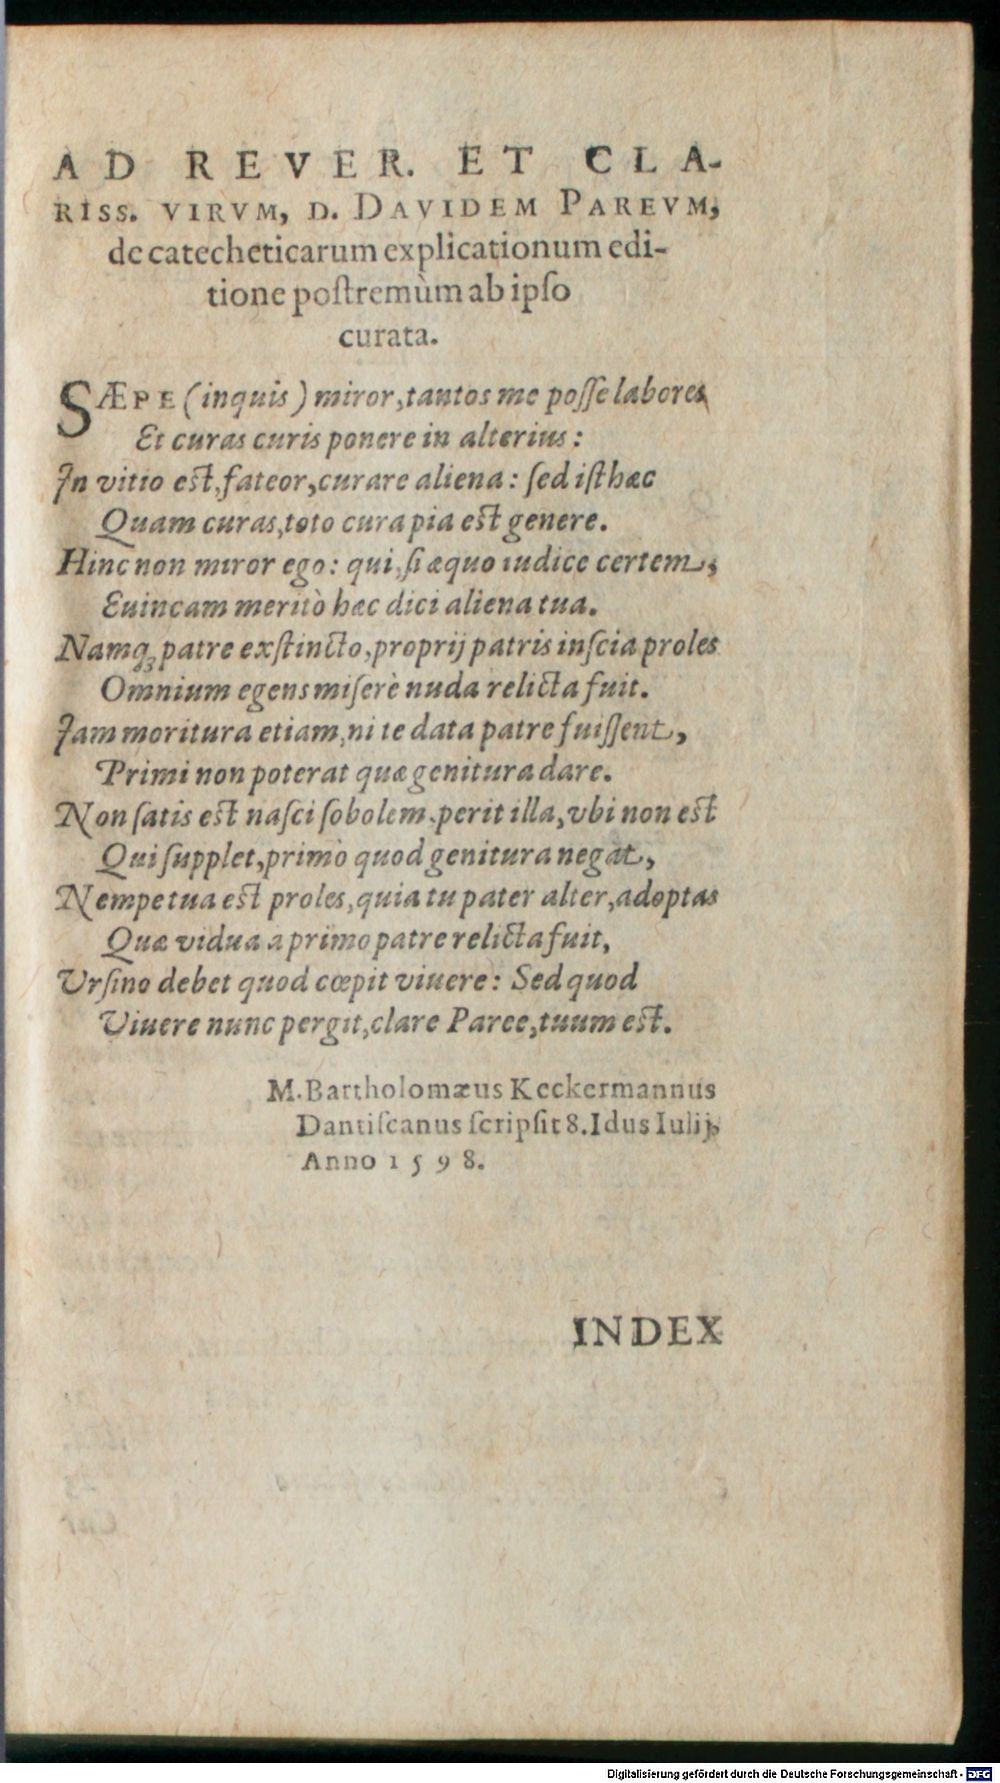 AD REVER. ET CLA-
RISS. VIRVM, D. DAVIDEM PAREVM,
de catecheticarum explicationum edi-
tione postremùm ab ipso
curata.
SÆPE (inquis) miror, tantos me posse labores
Et curas curis ponere in alterius:
In vitio est, fateor, curare aliena: sed isthæc
Quam curas, toto cura pia est genere.
Hinc non miror ego: qui, si æquo iudice certem,
Euincam meritò hæc dici aliena tua.
Namq; patre exstincto, proprij patris inscia proles
Omnium egens miserè nuda relicta fuit.
Jam moritura etiam, ni te data patre fuissent,
Primi non poterat quæ genitura dare.
Non satis est nasci sobolem. perit illa, vbi non est
Qui supplet, primò quod genitura negat,
Nempe tua est proles, quia tu pater alter, adoptas
Quæ vidua a primo patre relicta fuit,
Vrsino debet quod cœpit viuere: Sed quod
Viuere nunc pergit, clare Paree, tuum est.
M. Bartholomæus Keckermannus
Dantiscanus scripsit 8. Idus Iulij,
Anno 1598.
INDEX
Digitalisierung gefördert durch die Deutsche Forschungsgemeinschaft - DFG